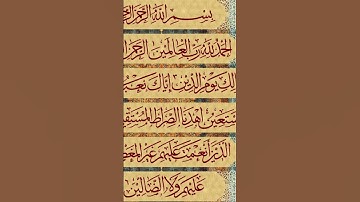 بِسْمِ اللَّهِ الرَّحْمَٰنِ
الْحَمْدُ لِلَّهِ رَبِّ الْعَالَمِينَ الرَّحْمَٰنِ
يَوْمِ الدِّينِ إِيَّاكَ نَعْبُدُ
اهْدِنَا الصِّرَاطَ الْمُسْتَقِ
الَّذِينَ أَنْعَمْتَ عَلَيْهِمْ غَيْرِ الْمَغْضُ
عَلَيْهِمْ وَلَا الضَّالِّينَ